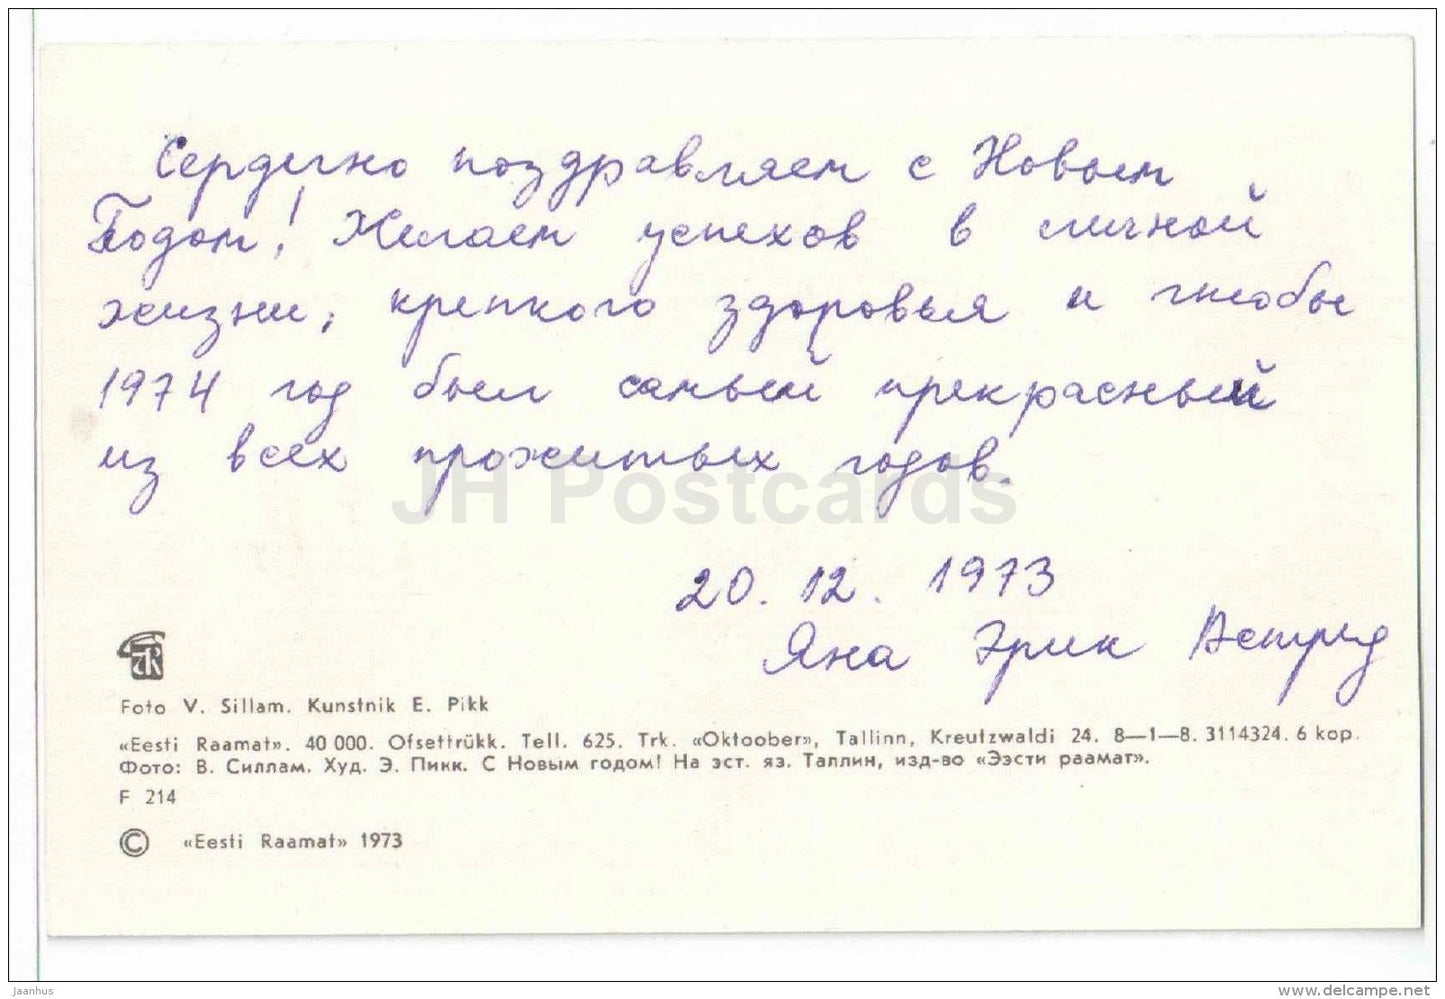 Сердечно поздравляем с Новым
Годом! Желаем успехов в личной
жизни, крепкого здоровья и чтобы
1974 год был самый прекрасный
из всех прожитых годов.
JH Postcards
20. 12. 1973
Яна Эрик Астрид
Foto V. Sillam. Kunstnik E. Pikk
«Eesti Raamat». 40 000. Ofsettrükk. Tell. 625. Trk. «Oktoober», Tallinn, Kreutzwaldi 24. 8—1—8. 3114324. 6 kop.
Фото: В. Силлам. Худ. Э. Пикк. С Новым годом! На эст. яз. Таллин, изд-во «Ээсти раамат».
F 214
© «Eesti Raamat» 1973
jaanhus
www.delcampe.net